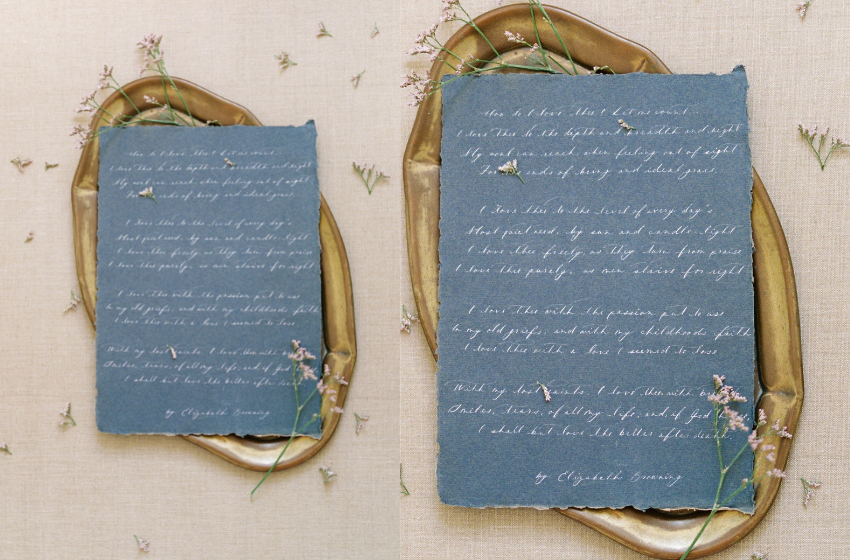 How do I love thee? Let me count...
I love thee to the depth and breadth and hight
My soul can reach, when feeling out of sight
For ends of being and ideal grace.
I love thee to the level of every day's
Most quiet need, by sun and candle-light
I love thee freely, as they turn from praise
I love thee purely, as men strive for right
I love thee with the passion put to use
In my old griefs, and with my childhoods faith
I love thee with a love I seemed to lose
With my lost saints. I love thee with
Smiles, tears, of all my life, and if God
I shall but love thee better after death.
by Elizabeth Browning
How do I love thee? Let me count...
I love thee to the depth and breadth and hight
My soul can reach, when feeling out of sight
For ends of being and ideal grace.
I love thee to the level of every day's
Most quiet need, by sun and candle-light
I love thee freely, as they turn from praise
I love thee purely, as men strive for right
I love thee with the passion put to use
In my old griefs, and with my childhoods faith
I love thee with a love I seemed to lose
With my lost saints. I love thee with
Smiles, tears, of all my life, and if God
I shall but love thee better after death.
by Elizabeth Browning